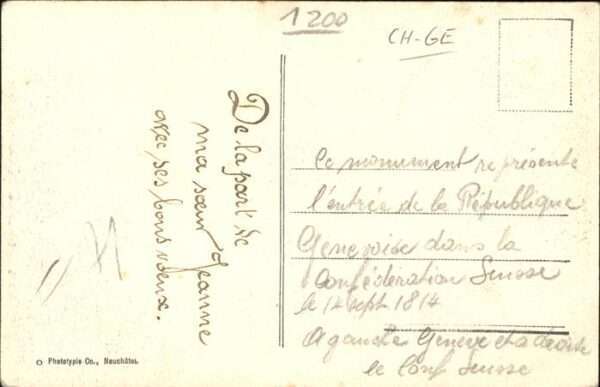 1200
CH-GE
De la part de
ma sœur Jeanne
avec ses bons vœux.
Ce monument représente
l'entrée de la République
Genevoise dans la
Confédération Suisse
le 12 sept 1814
A gauche Genève et a droite
la Conf Suisse
Phototypie Co., Neuchâtel